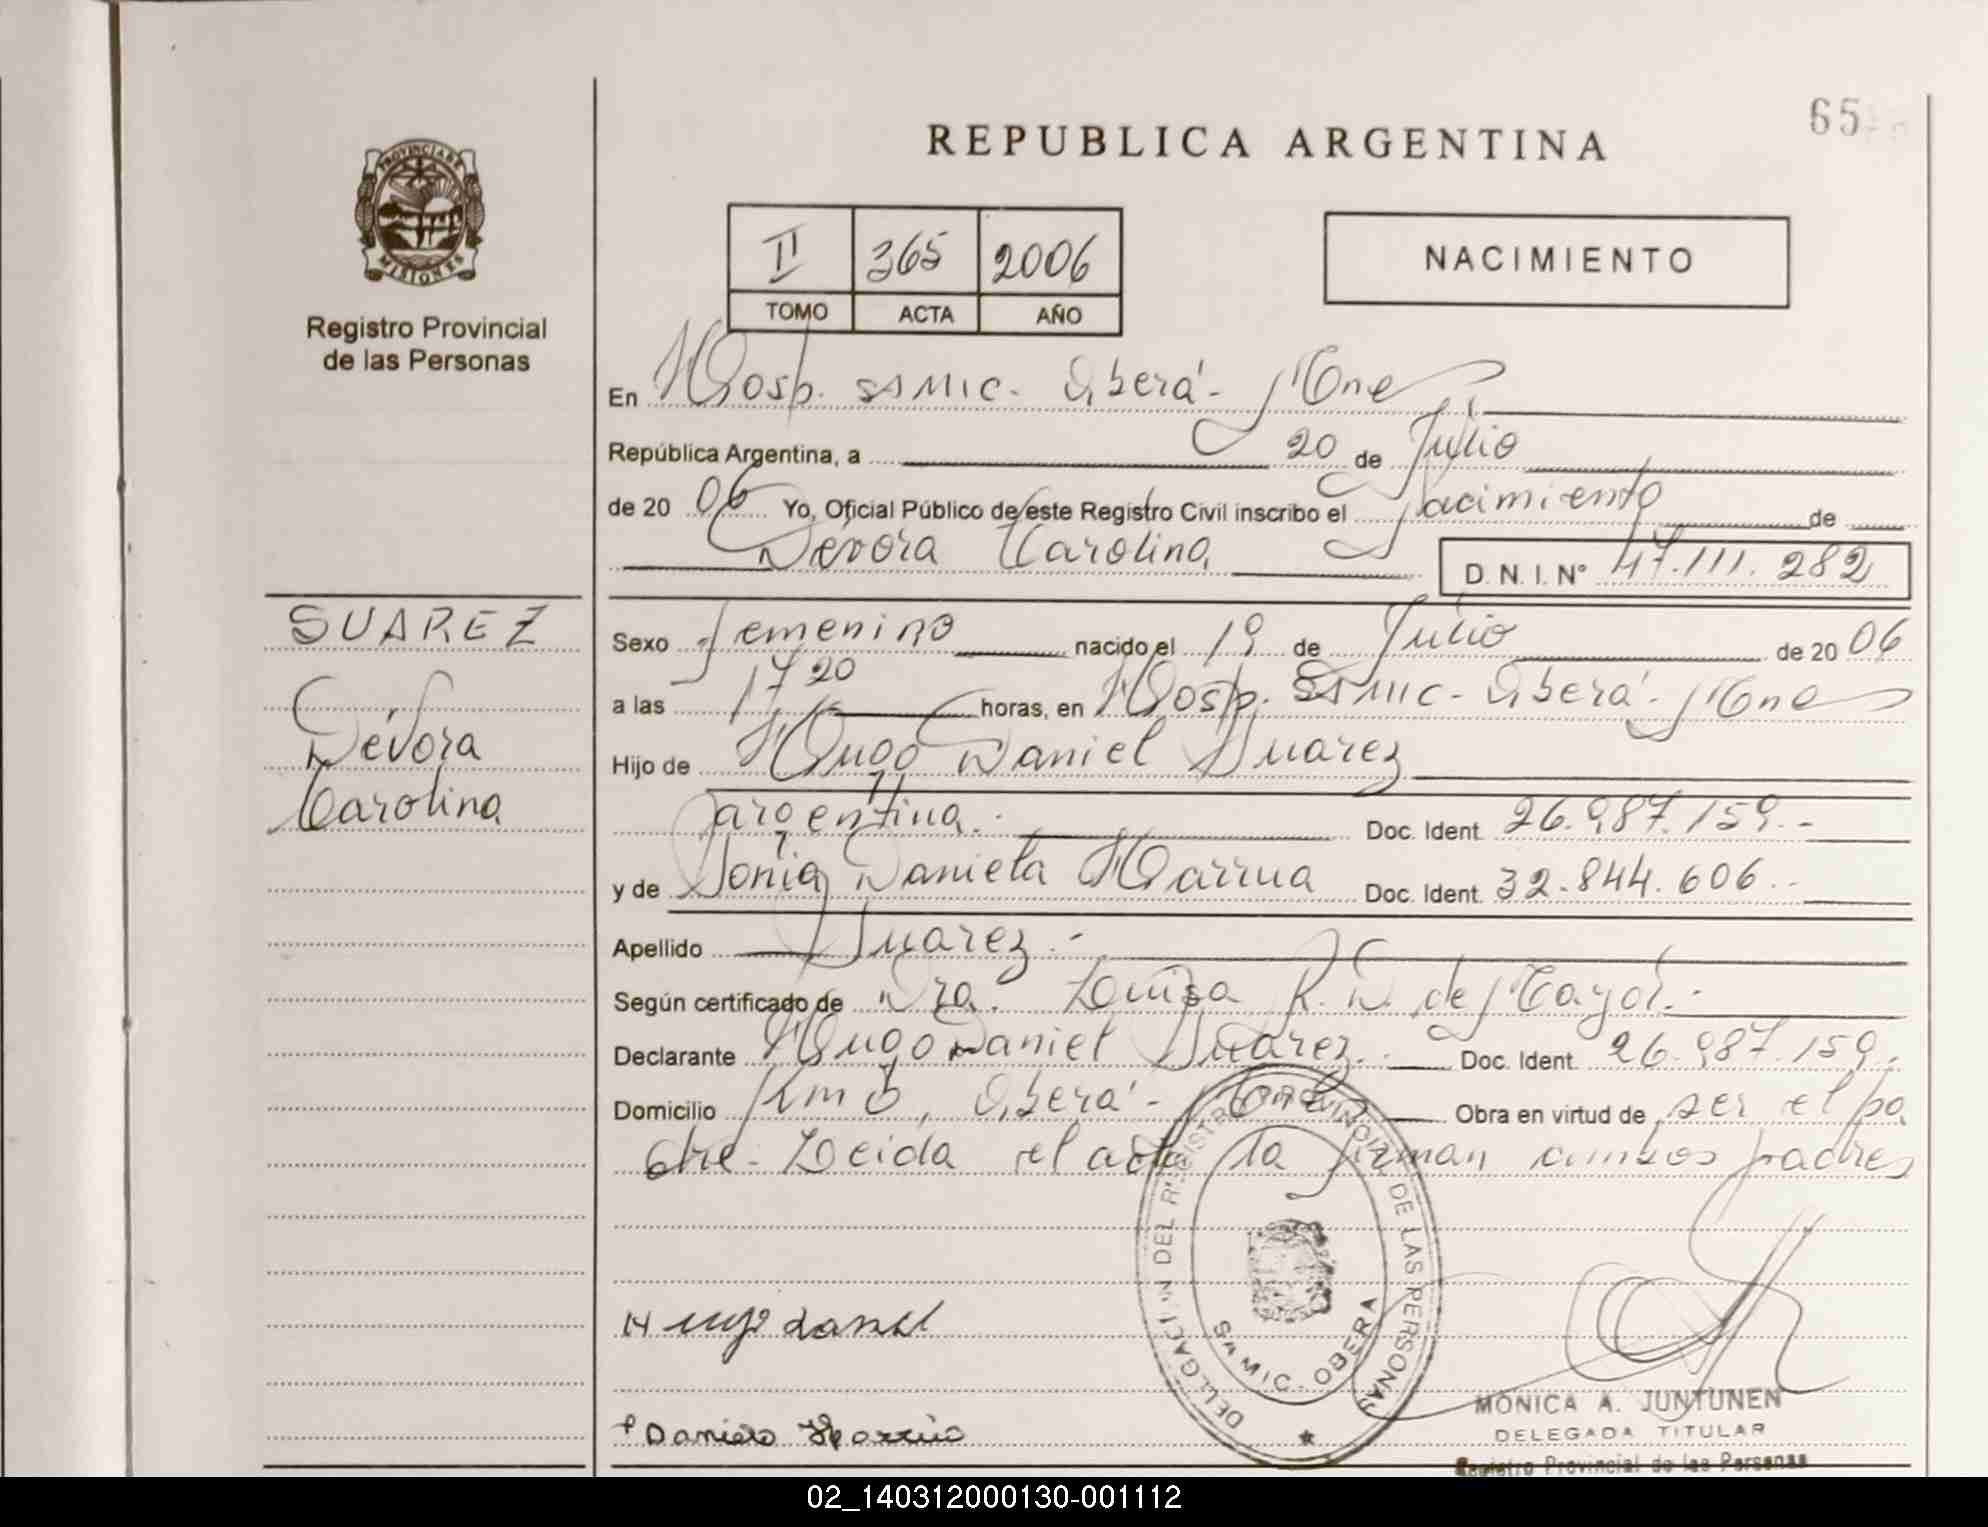 65
REPUBLICA ARGENTINA
PROVINCIA DE
MISIONES
Registro Provincial
de las Personas
II 365 2006
TOMO ACTA AÑO
NACIMIENTO
En Hosp. SAMIC - Oberá - Mnes
República Argentina, a 20 de Julio
de 2006 Yo, Oficial Público de este Registro Civil inscribo el Nacimiento de
Dévora Carolina D. N. I. Nº 47.111.282
SUAREZ
Dévora
Carolina
Sexo femenino nacido el 19 de Julio de 2006
a las 17 20 horas, en Hosp. SAMIC - Oberá - Mnes
Hijo de Hugo Daniel Suarez
argentina.- Doc. Ident. 26.987.159.-
y de Sonia Daniela Harrua Doc. Ident. 32.844.606.-
Apellido Suarez.-
Según certificado de Dra. R. D. de
Declarante Hugo Daniel Suarez.- Doc. Ident. 26.987.159.
Domicilio Km 0, Oberá - Mnes Obra en virtud de ser el pa
dre - Leida el acta la firman ambos padres
Hugo Daniel
Daniela Harrua
DELEGACION DEL REGISTRO PROVINCIAL DE LAS PERSONAS
SAMIC - OBERA
MONICA A. JUNTUNEN
DELEGADA TITULAR
Registro Provincial de las Personas
02_140312000130-001112